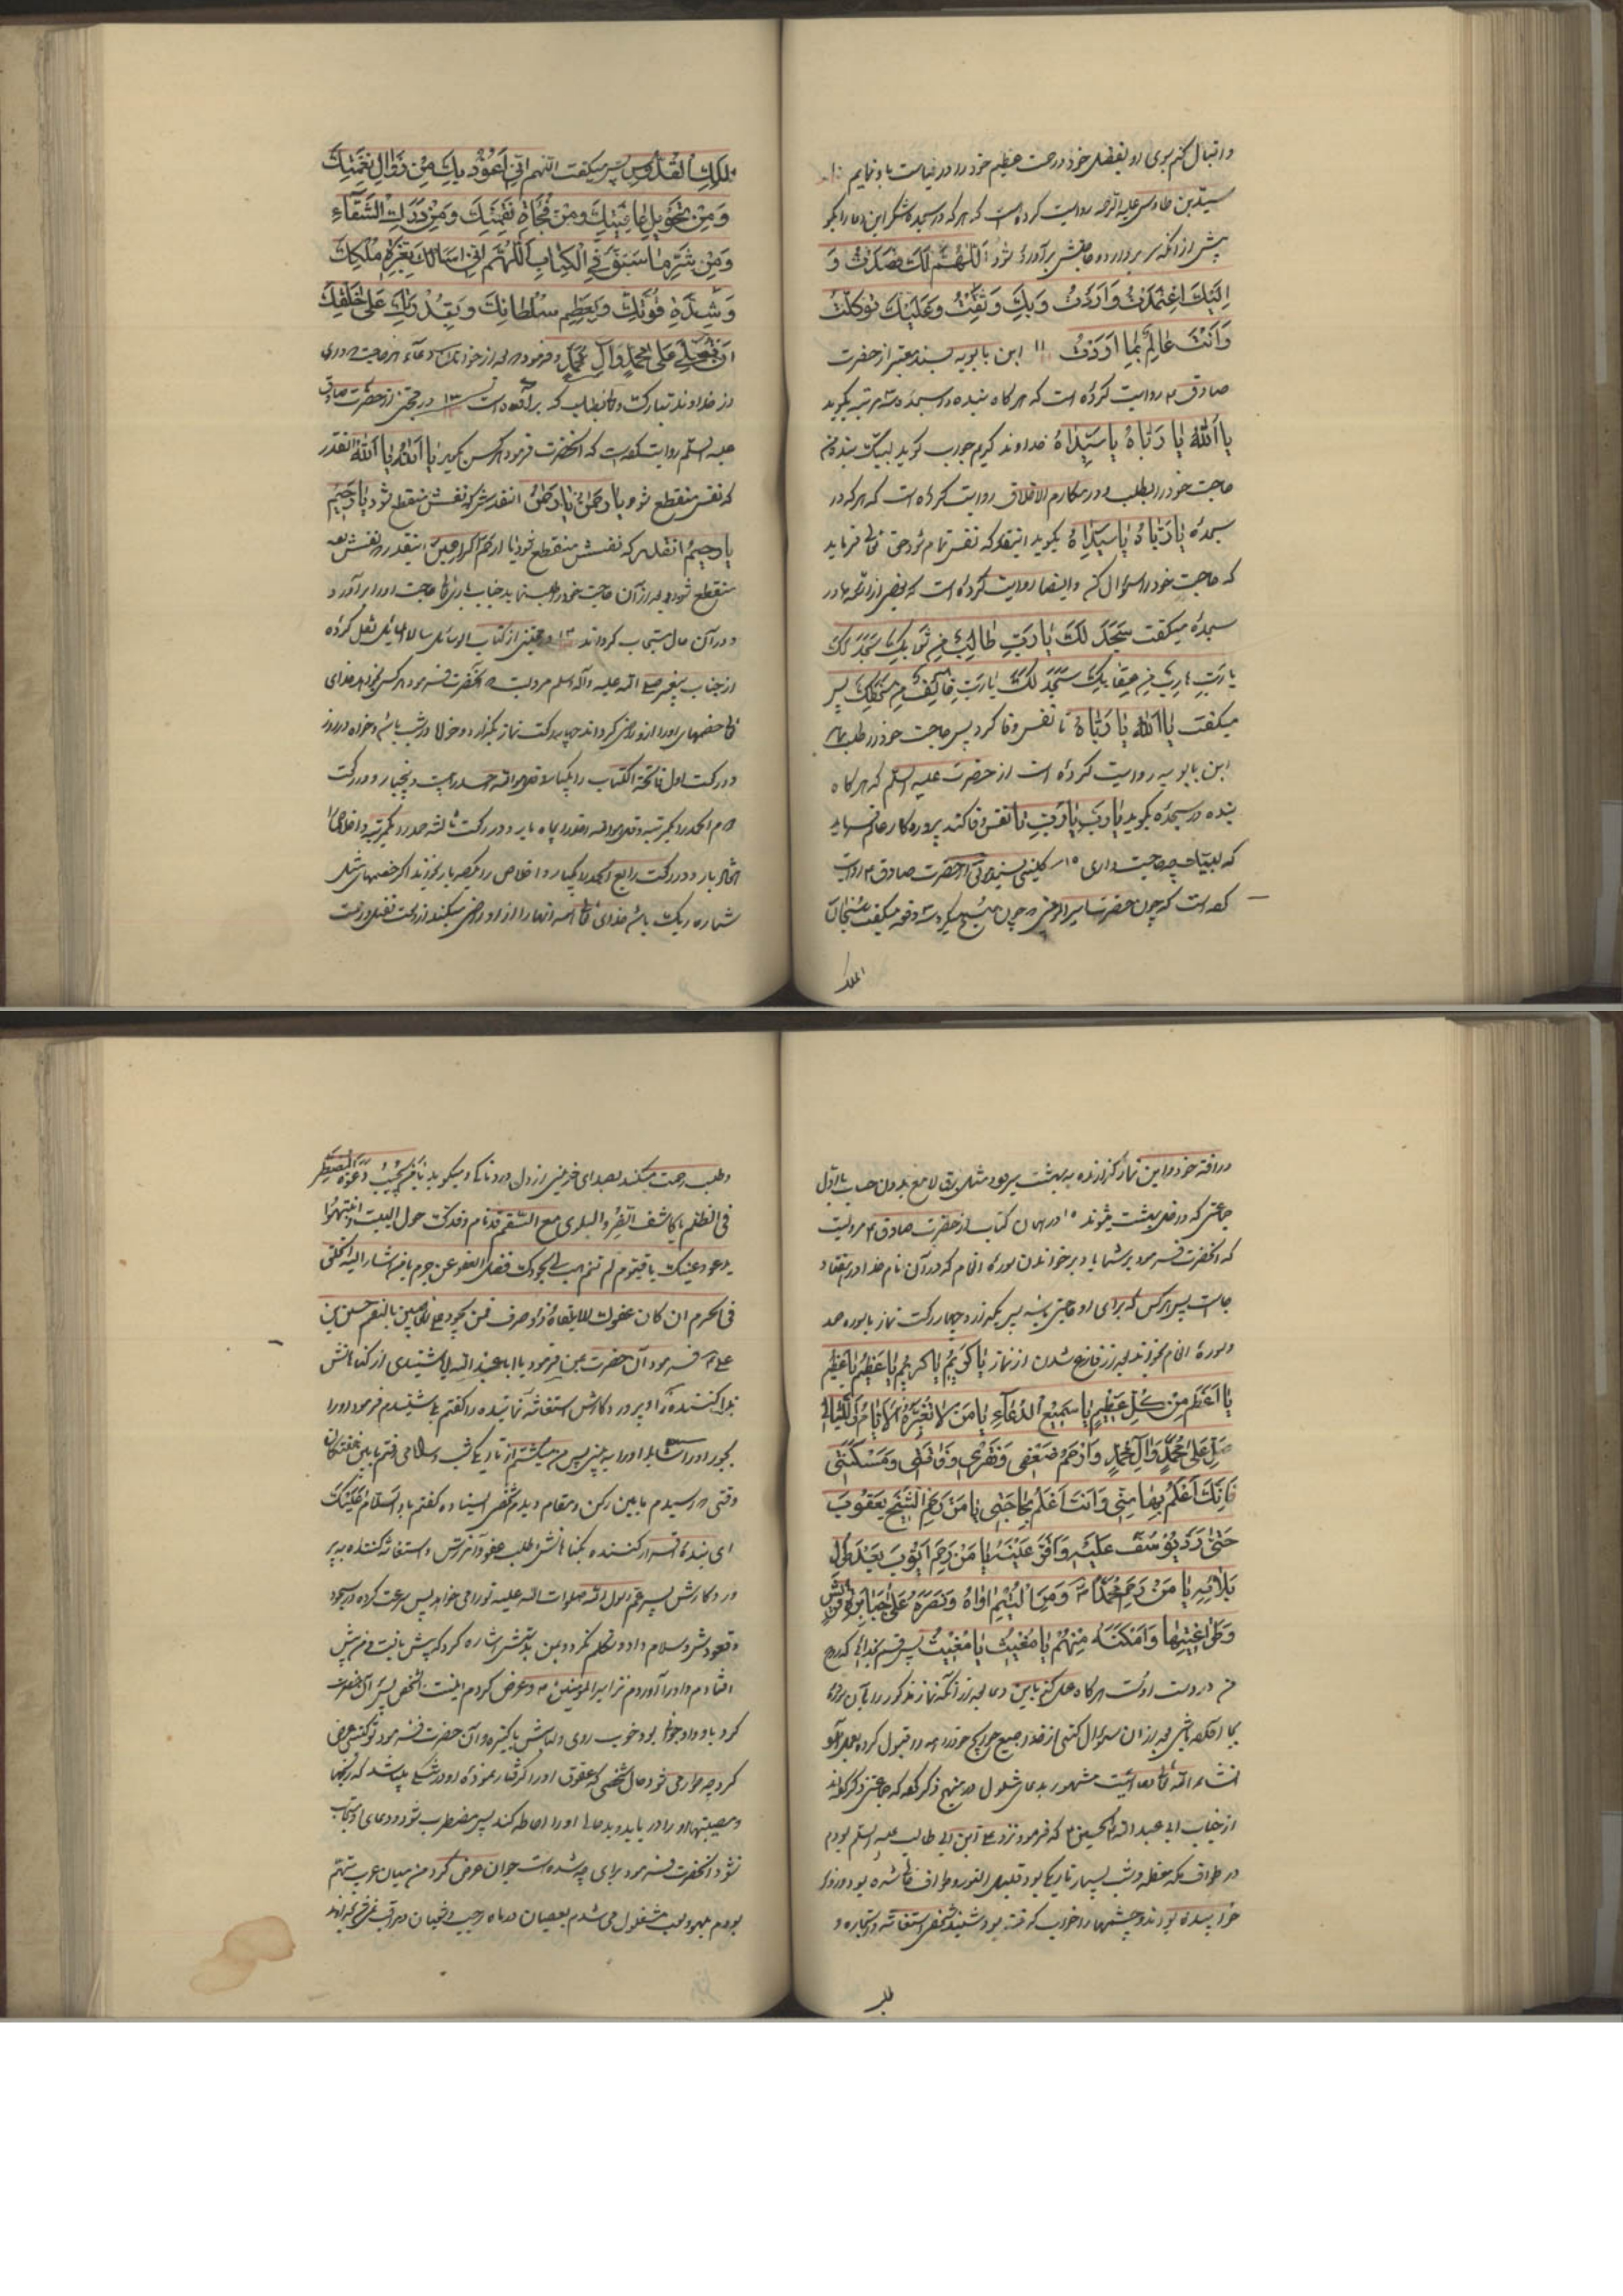 و اقبال کنم بوی او بفضل خود و رحمت عظیم خود را در قیامت باو نمایم ۱۰
سید بن طاوس علیه الرحمه روایت کرده است که هر که در سجده شکر این دعا را بگو
پیش از آنکه سر بردارد حاجتش برآورده شود اَللّهُمَّ لَکَ قَصَدْتُ وَ
اِلَیْکَ اعْتَمَدْتُ وَاَرَدْتُ وَبِکَ وَثِقْتُ وَعَلَیْکَ تَوَکَّلْتُ
وَاَنْتَ عالِمٌ بِما اَرَدْتُ ۱۱ ابن بابویه بسند معتبر از حضرت
صادق ۴ روایت کرده است که هر گاه بنده در سجده سه مرتبه بگوید
یا اَللّهُ یا رَبّاهُ یا سَیِّداهُ خداوند کریم جواب گوید لبیک بنده من
حاجت خود را بطلب و در مکارم الاخلاق روایت کرده است که هر که در
سجده یا رَبّاهُ یا سَیِّداهُ بگوید انیقدر که نفس تمام شود حق تعالی فرماید
که حاجت خود را سؤال کن و ایضا روایت کرده است که بعضی از ائمه ما در
سجده میگفت سَجَدَ لَکَ یا رَبِّ طالِبٌ مِنْ ثَوابِکَ سَجَدَ لَکَ
یا رَبِّ هارِبٌ مِنْ عِقابِکَ سَجَدَ لَکَ یا رَبِّ خائِفٌ مِنْ سَخَطِکَ پس
میگفت یا اَللّهُ یا رَبّاهُ تا نفس وفا کرد پس حاجت خود را طلب
ابن بابویه روایت کرده است از حضرت علیه السلم که هر گاه
بنده در سجده بگوید یا رَبِّ یا رَبِّ تا نفس وفا کند پروردگار عالم
که لبیک چه حاجت داری ۱۵ کلینی بسند از حضرت صادق ۴ روایت
کرده است که چون حضرت امیرالمؤمنین ۴ چون صبح میکرد سه دفعه میکفت سُبْحانَ
الملک
لمَلِکِ القُدُّوسِ پس میکفت اللّهم اِنّی اَعُوْذُ بِکَ مِنْ زَوالِ نِعْمَتِکَ
وَ مِنْ تَحْویلِ عافِیَتِکَ وَ مِنْ فُجْأَةِ نِقْمَتِکَ وَ مِنْ دَرَکِ الشَّقاءِ
وَ مِنْ شَرِّ ما سَبَقَ فِی الکِتابِ اَللّهُمَّ اِنّی اَسْاَلُکَ بِعِزَّةِ مُلْکِکَ
وَ شِدَّةِ قُوَّتِکَ وَ بِعَظیمِ سُلْطانِکَ وَ بِقُدْرَتِکَ عَلی خَلْقِکَ
اَنْ تُصَلِّیَ عَلی مُحَمَّدٍ وَ آلِ مُحَمَّدٍ و فرمود بعد از خواندن این دعا هر حاجت داری
از خداوند تبارک و تعالی بطلب که برآورده است ۱۲ و در مجتنی از حضرت صادق
علیه السلم روایت کرده است که آنحضرت فرمود هر کس بگوید یا اَللّهُ یا اَللّهُ آنقدر
که نفس منقطع شود و یا رَحْمنُ یا رَحْمنُ آنقدر که نفسش منقطع شود یا رَحیمُ
یا رَحیمُ آنقدر که نفسش منقطع شود یا ارحم الراحمین آنیقدر که نفسش
منقطع شود بعد از آن حاجت خود را طلب نماید جناب باری تعالی حاجت او را برآورد
و در آن حال مستجاب گرداند ۱۳ و مجتنی از کتاب الوسائل الی المسائل نقل کرده
از جناب پیغمبر صلی الله علیه و آله و سلم مرویست که آنحضرت فرمود هر کس خواهد خدای
تعالی خصمهای او را از او راضی گرداند چهار رکعت نماز بگذارد خواه در شب باشد و خواه در روز
در رکعت اول فاتحة الکتاب را یکبار و قل هو الله احد را بیست و پنجبار و در رکعت
دوم الحمد را یکمرتبه و قل هو الله احد را پنجاه بار و در رکعت ثالثه حمد را یکمرتبه و اخلاص را
هفتاد بار و در رکعت رابع الحمد را یکبار و اخلاص را صد بار بخواند اگر خصمهای مثل
شماره ریگ باشد خدای تعالی همه آنها را از او راضی میکند از سعت فضل و رحمت
و رافت خود و این نماز گذارنده به بهشت میرود مثل برق لامع بدون حساب با اول
جماعتی که داخل بهشت میشوند ۱۵ در همان کتاب از حضرت صادق ۴ مرویست
که آنحضرت فرمود بر شما باد بر خواندن سوره انعام که در آن نام خدا در هفتاد
جا است پس هر کس که برای او حاجتی باشد پس بگذارد چهار رکعت نماز با سوره حمد
و سورهٔ انعام بخواند بعد از فارغ شدن از نماز یا کَریمُ یا کَریمُ یا عَظیمُ یا عَظیمُ
یا اَعْظَمَ مِنْ کُلِّ عَظیمٍ یا سَمیعَ الدُّعاءِ یا مَنْ لا تُغَیِّرُهُ الْاَیّامُ وَاللَّیالی
صَلِّ عَلی مُحَمَّدٍ وَ آلِ مُحَمَّدٍ وَ ارْحَمْ ضَعْفی وَ فَقْری وَ فاقَتی وَ مَسْکَنَتی
فَاِنَّکَ اَعْلَمُ بِها مِنّی وَ اَنْتَ اَعْلَمُ بِحاجَتی یا مَنْ رَحِمَ الشَّیْخَ یَعْقُوبَ
حَتّی رَدَّ یُوْسُفَ عَلَیْهِ وَ اَقَرَّ عَیْنَهُ یا مَنْ رَحِمَ اَیُّوبَ بَعْدَ طُولِ
بَلائِهِ یا مَنْ رَحِمَ مُحَمَّداً وَ مِنَ الْیُتْمِ اواهُ وَ نَصَرَهُ عَلی جَبابِرَةِ قُرَیْشٍ
وَ طَواغیتِها وَ اَمْکَنَهُ مِنْهُمْ یا مُغیثُ یا مُغیثُ پس قسم بخدائی که روح
من در دست اوست هر گاه عمل کنی باین دعا بعد از آنکه نماز مذکور را بآن سوره
بجا آورده باشی بعد از آن سؤال کنی از خدا جمیع حوایج خود را همه را قبول کرده بعمل آورد
انشاء الله تعالی دعائیست مشهور بدعای مشلول در منهج ذکر کرده که جماعتی ذکر کرده‌اند
از جناب ابی عبد الله الحسین ۴ که فرمود نزد علی ابن ابی طالب علیه السلم بودم
در طواف مکه معظمه و شب بسیار تاریک بود قلیل النور و طواف خالی شده بود و زوار
خوابیده بودند و چشمها را خواب گرفته بود شنید شخصی استغاثه و استجاره و
طلب
و طلب رحمت میکند بصدای حزینی از دل دردناک و میگوید یا مَنْ یُجیبُ دَعْوَةَ الْمُضْطَرّ
فی الظلم یا کاشف الضر و البلوی مع السقم قد نام وفدک حول البیت و انتبهوا
یدعو و عینک یا قیوم لم تنم هب لی بجودک فضل العفو عن جرم یا من اشار الیه الخلق
فی الحرم ان کان عفوک لا یلقاه ذو سرف فمن یجود علی العاصین بالنعم حسین بن
علی ۴ فرمود آن حضرت بمن فرمود یا ابا عبد الله آیا شنیدی از گناهانش
ندا کننده را و پروردگارش استغاثه نماینده را گفتم بلی شنیدم فرمود او را
بجو او را شاید او را ببینی پس من میگشتم در تاریکی شب و میرفتم ما بین خفتگان
وقتی که رسیدم ما بین رکن و مقام دیدم شخصی ایستاده گفتم باو السَّلامُ عَلَیْکَ
ای بنده اقرار کننده بگناهانش طلب عفو و آمرزش و استغاثه کننده به پر
وردگارش پسر عم رسول الله صلوات الله علیه تو را می خواهد پس سرعت کرد در سجود
و قعودش و سلام داد و تکلم نکرد و بمن بدستش اشاره کرد که پیش بیفت من پیش
افتادم و او را آوردم نزد امیرالمؤمنین ۴ و عرض کردم اینست آنشخص پس آنحضرت نظر
کرد باو و او جوان بود خوب روی و لباسش پاکیزه و آن حضرت فرمود تو کیستی عرض
کرد چه طور می شود حال شخصی که عقوق او را گرفتار نموده و در تنگی باشد که رنجها
و مصیبتها او را دریابد و بدحالی او را احاطه کند پس مضطرب شود و دعای او مستجاب
نشود آنحضرت فرمود برای چه شده است جوان عرض کرد من میان عرب متهم
بودم بلهو و لعب مشغول می شدم بعصیان در ماه رجب و شعبان و مراقب